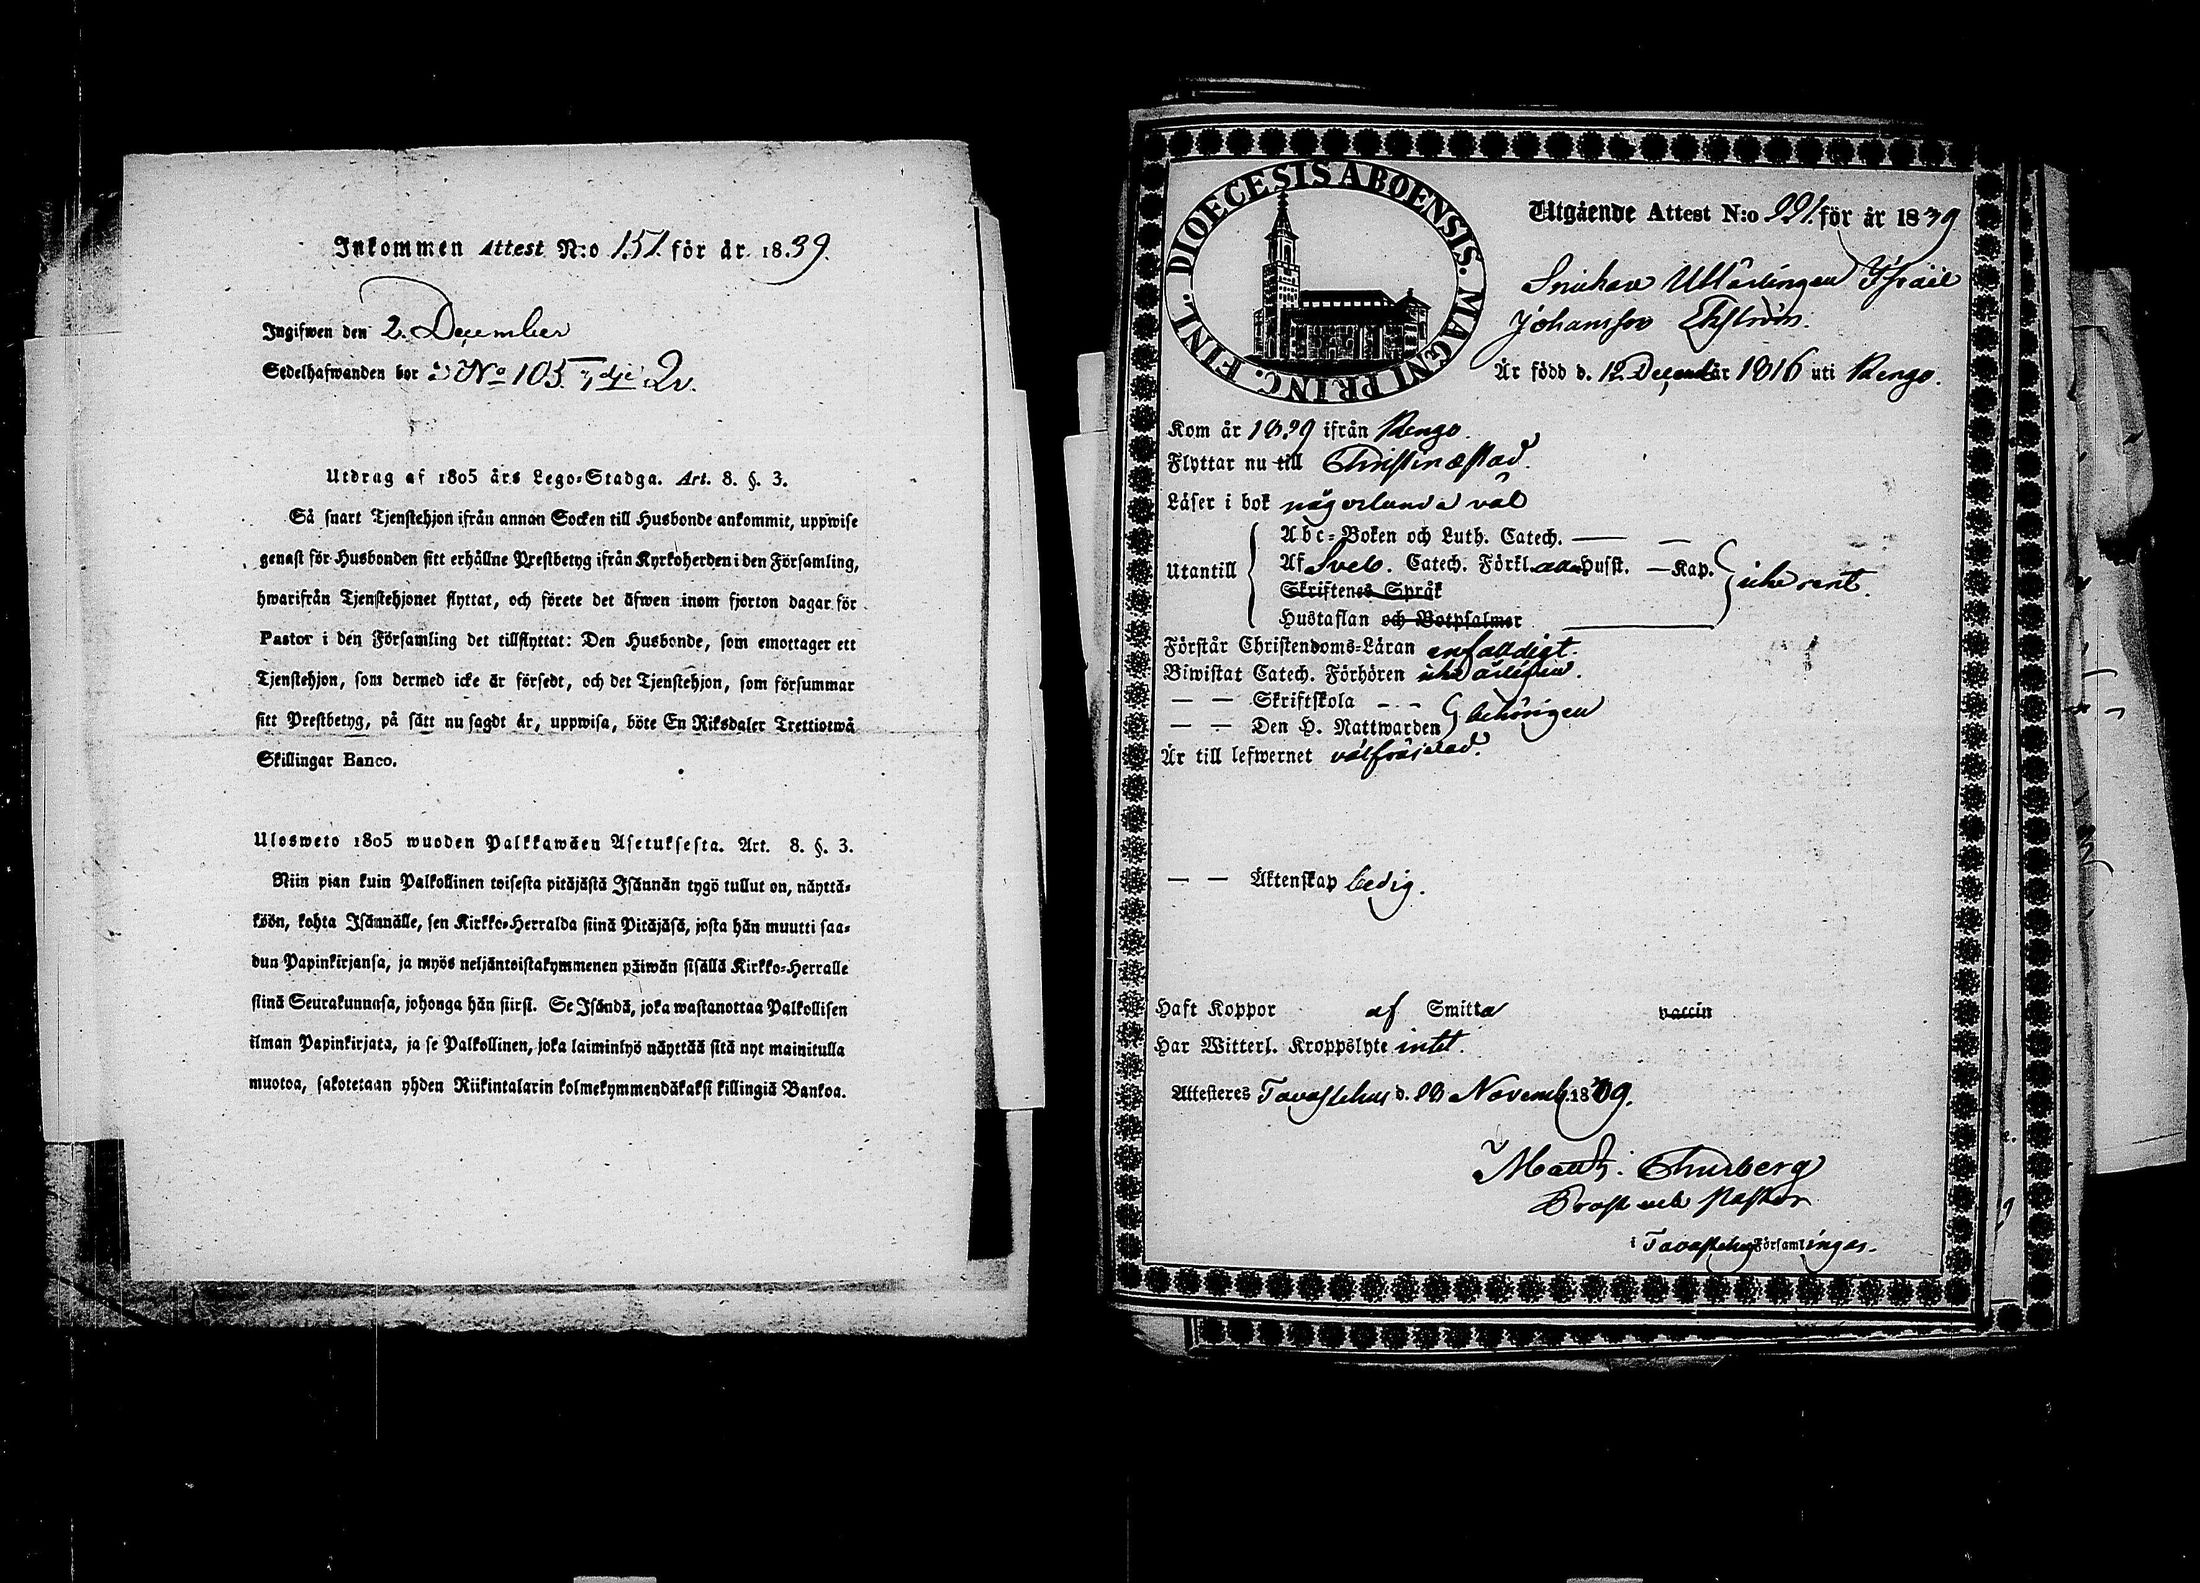 Inkommen Attest N:o 151. för år 1839.
Ingifwen den 2. December
Sedelhafwanden bor i No 105
Utdrag af 1805 års Lego-Stadga. Art. 8. §. 3.
Så snart Tjenstehjon ifrån annan Socken till Husbonde ankommit, uppwise
genast för Husbonden sitt erhållne Prestbetyg ifrån Kyrkoherden i den Församling,
hwarifrån Tjenstehjonet flyttat, och förete det äfwen inom fjorton dagar för
Pastor i den Församling det tillflyttat: Den Husbonde, som emottager ett
Tjenstehjon, som dermed icke är försedt, och det Tjenstehjon, som försummar
sitt Prestbetyg, på sätt nu sagdt är, uppwisa, böte En Riksdaler Trettiotwå
Skillingar Banco.
Ulosweto 1805 wuoden Palkkawäen Asetuksesta. Art. 8. §. 3.
Niin pian kuin Palkollinen toisesta pitäjästä Isännän tygö tullut on, näyttä-
köön, kohta Isännälle, sen Kirkko-Herralda siinä Pitäjäsä, josta hän muutti saa-
dun Papinkirjansa, ja myös neljäntoistakymmenen päiwän sisällä Kirkko-Herralle
siinä Seurakunnasa, johonga hän siirsi. Se Isändä, joka wastanottaa Palkollisen
ilman Papinkirjata, ja se Palkollinen, joka laiminlyö näyttää sitä nyt mainitulla
muotoa, sakotetaan yhden Riikintalarin kolmekymmendäkaksi killingiä Bankoa.
DIOECESIS ABOENSIS. MAGNI PRINC. FINL.
Utgående Attest N:o 991. för år 1839
Snickare Utlärlingen Israël
Johansson Ekström.
Är född d. 12 Decemb år 1816 uti Rengo.
Kom år 1839 ifrån Rengo.
Flyttar nu till Christinæstad.
Läser i bok någorlunda väl
Utantill
Abc-Boken och Luth. Catech. — —
Af Sveb. Catech. Förkl. alla Husst. — Kap.
icke rent.
Skriftenes Språk
Hustaflan och Botpsalmer
Förstår Christendoms-Läran enfaldigt.
Biwistat Catech. Förhören icke årligen.
— — Skriftskola - -
behörigen
— — Den H. Nattwarden
Är till lefwernet välfräjdad.
— — Äktenskap ledig.
Haft Koppor af Smitta vaccin
Har Witterl. Kroppslyte intet.
Attesteres Tavastehus d. Novemb. 1839.
Thurberg
Prost och Pastor
i Tavastehus Församlingar.